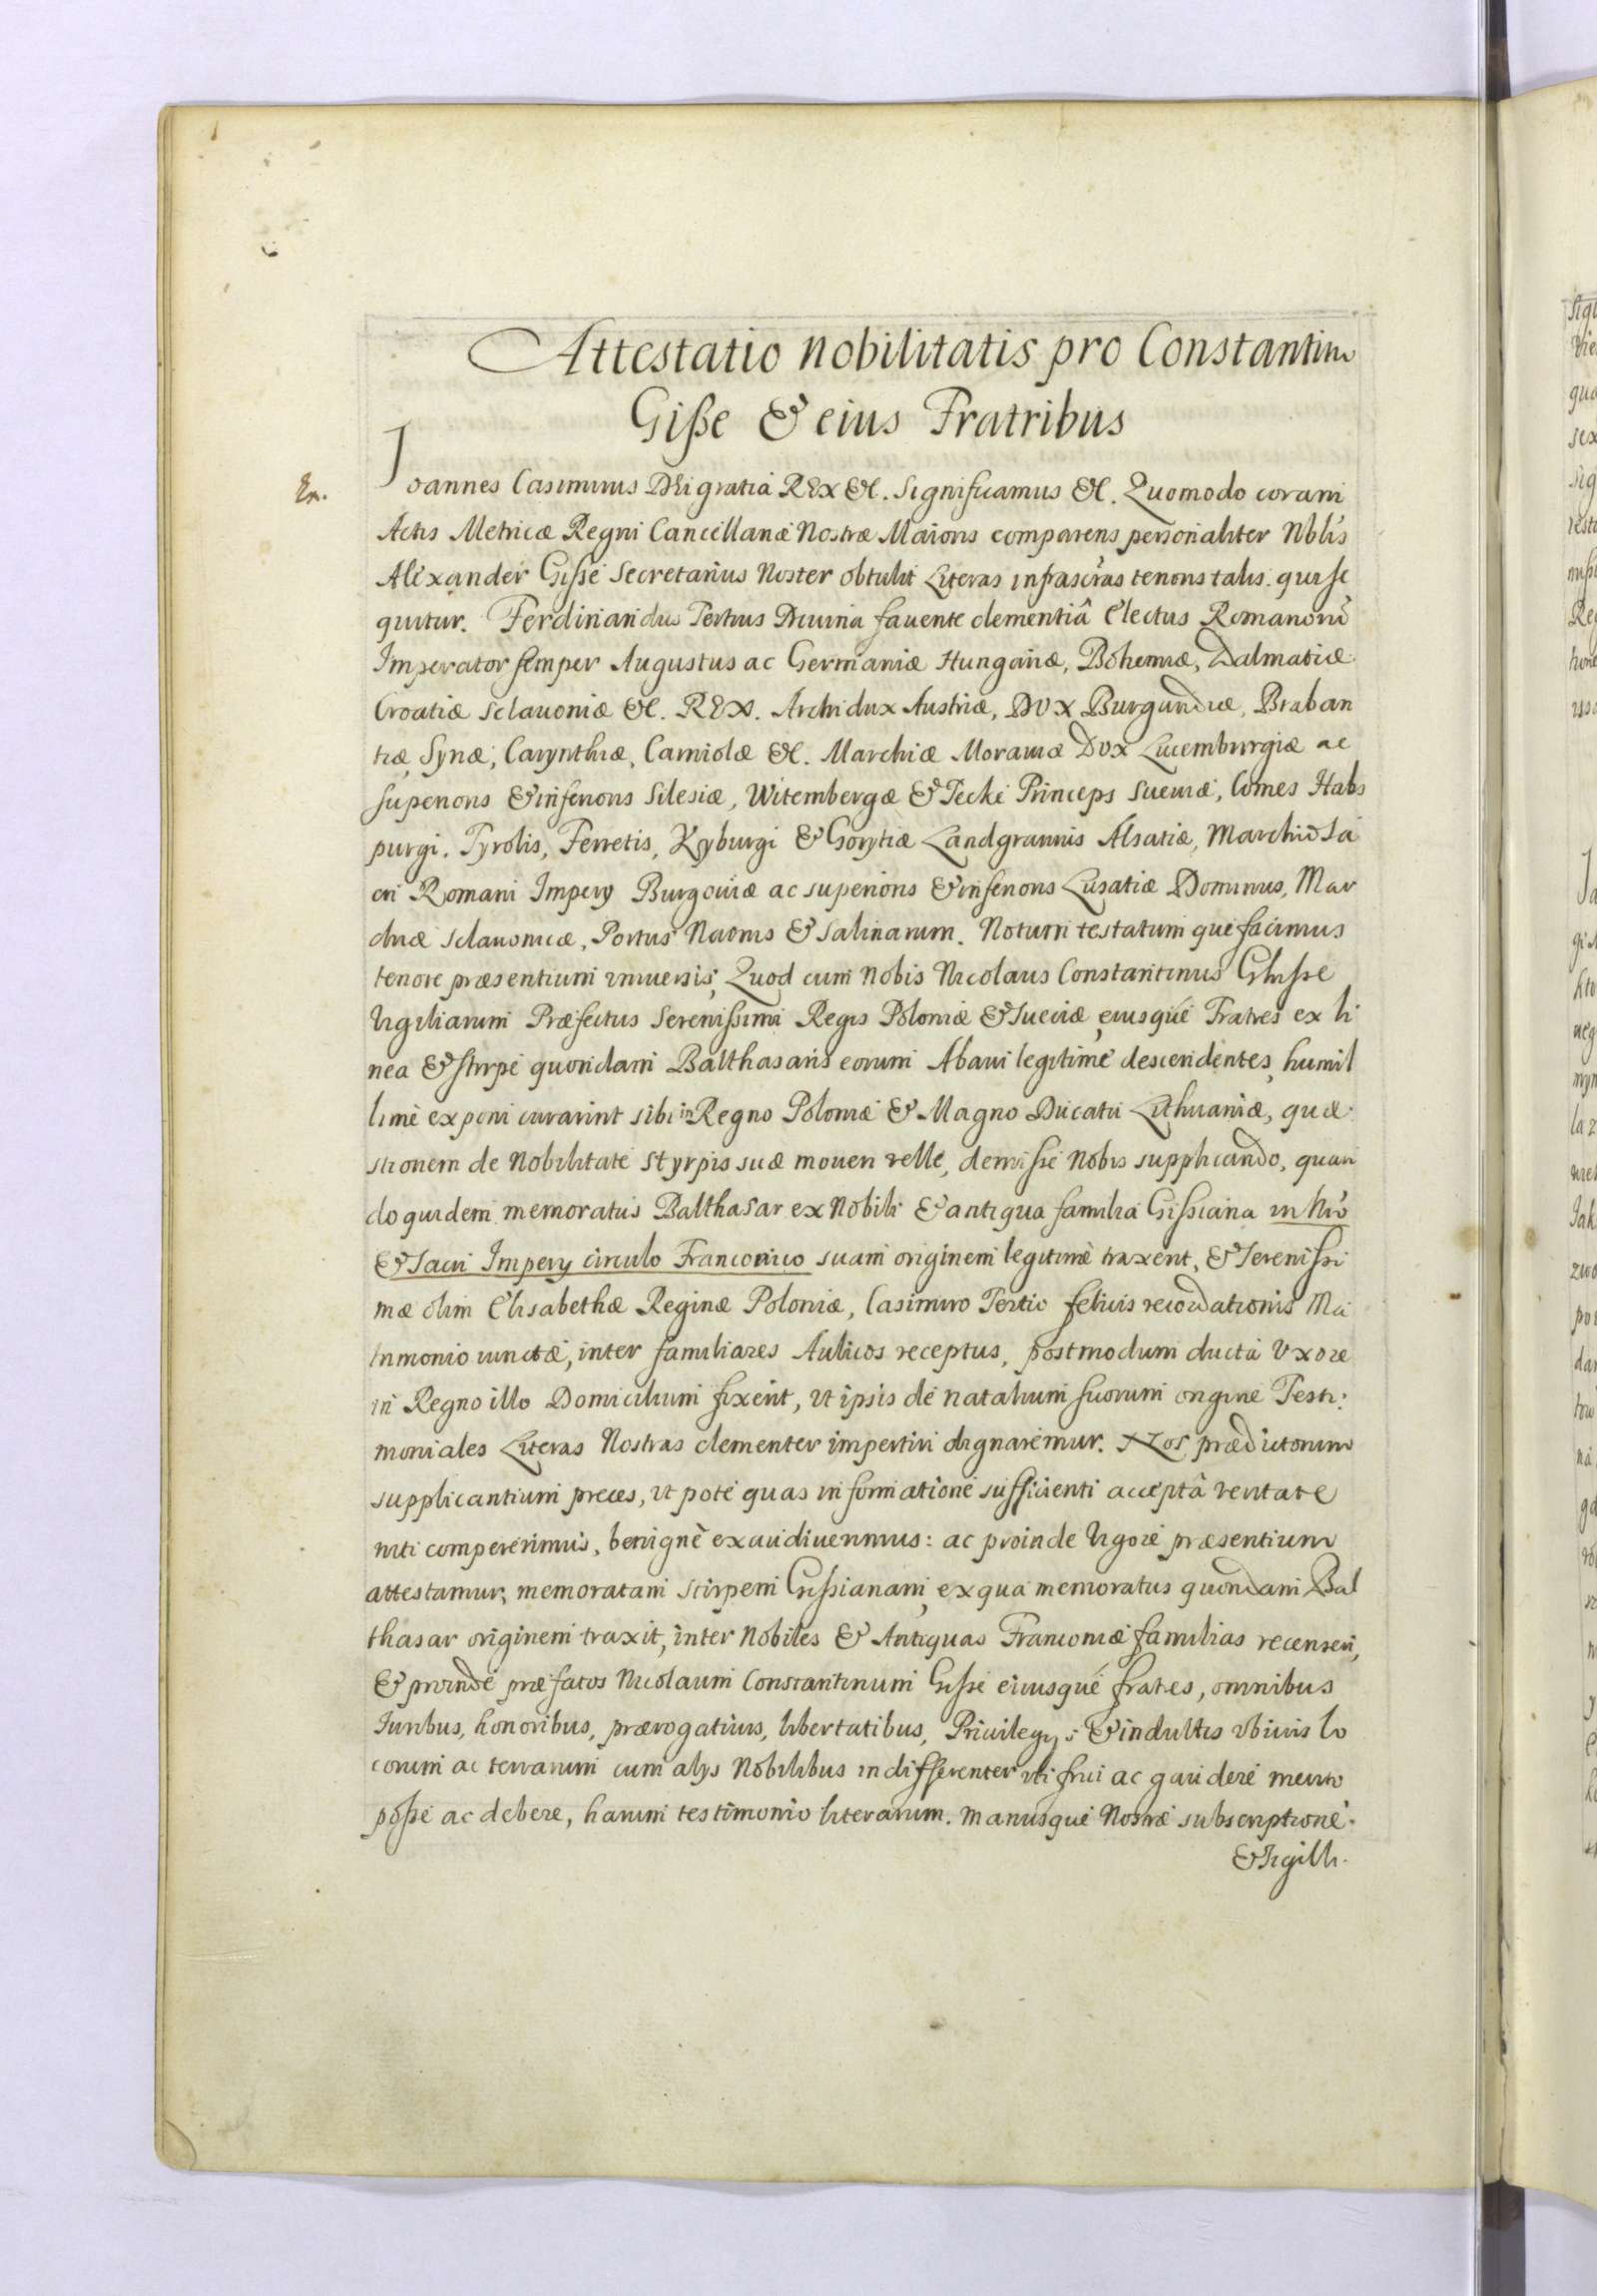 Attestatio nobilitatis pro Constantino
Gisse & eius Fratribus
Ex.
Joannes Casimirus DEi gratia REX &c. Significamus &c. Quomodo coram
Actis Metricæ Regni Cancellariæ Nostræ Maioris comparens personaliter Nblis
Alexander Gisse Secretarius Noster obtulit Literas infrascras tenoris talis. qui se
quitur. Ferdinandus Tertius Diuina fauente clementiâ Electus Romanorũ
Imperator semper Augustus ac Germaniæ Hungariæ, Bohemiæ, Dalmatiæ
Croatiæ Sclauoniæ &c. REX. Archidux Austriæ, DVX Burgundiæ, Braban
tiæ, Syriæ, Carynthiæ, Carniolæ &c. Marchiæ Morauiæ DVX Lucemburgiæ ac
superioris & inferioris Silesiæ, Witembergæ & Teckæ Princeps Sueuiæ, Comes Habs
purgi. Tyrolis, Ferretis, Kyburgi & Gorytiæ Landgrauius Alsatiæ, Marchio Sa
cri Romani Impery Burgouiæ ac superioris & inferioris Lusatiæ Dominus, Mar
chiæ Sclauonicæ, Portus Naonis & Salinarum. Notum testatum que facimus
tenore præsentium vniuersis, Quod cum nobis Nicolaus Constantinus Ghisse
Vigiliarum Præfectus Serenissimi Regis Poloniæ & Sueciæ, eiusque Fratres ex li
nea & stirpe quondam Balthasaris eorum Abaui legitime descendentes, humil
limè exponi curarint sibi in Regno Poloniæ & Magno Ducatu Lithuaniæ, quæ
stionem de Nobilitate Styrpis suæ moueri velle, demisse Nobis supplicando, quan
do quidem memoratus Balthasar ex Nobili & antiqua familia Gissiana in Nrõ
& Sacri Impery circulo Franconico suam originem legitimè traxerit, & Serenissi
mæ olim Elisabethæ Reginæ Poloniæ, Casimiro Tertio felicis recordationis Ma
trimonio iunctæ, inter familiares Aulicos receptus, postmodum ducta Vxore
in Regno illo Domicilium fixerit, vt ipsis de natalium suorum origine Testi:
moniales Literas Nostras clementer impertiri dignaremur. Nos prædictorum
supplicantium preces, vt pote quas informatione sufficienti acceptâ veritate
niti comperimus, benignè exaudiuerimus: ac proinde Vigore præsentium
attestamur, memoratam Stirpem Gissianam, ex qua memoratus quondam Bal
thasar originem traxit, inter Nobiles & Antiquas Franconiæ familias recenseri,
& proinde præfatos Nicolaum Constantinum Gisse eiusque fratres, omnibus
Iuribus, honoribus, prærogatiuis, libertatibus, Priuilegys & indultis vbiuis lo
corum ac terrarum cum alys Nobilibus indifferenter vti frui ac gaudere merito
posse ac debere, harum testimonio literarum. Manusque Nostræ subscriptione
& Sigilli.